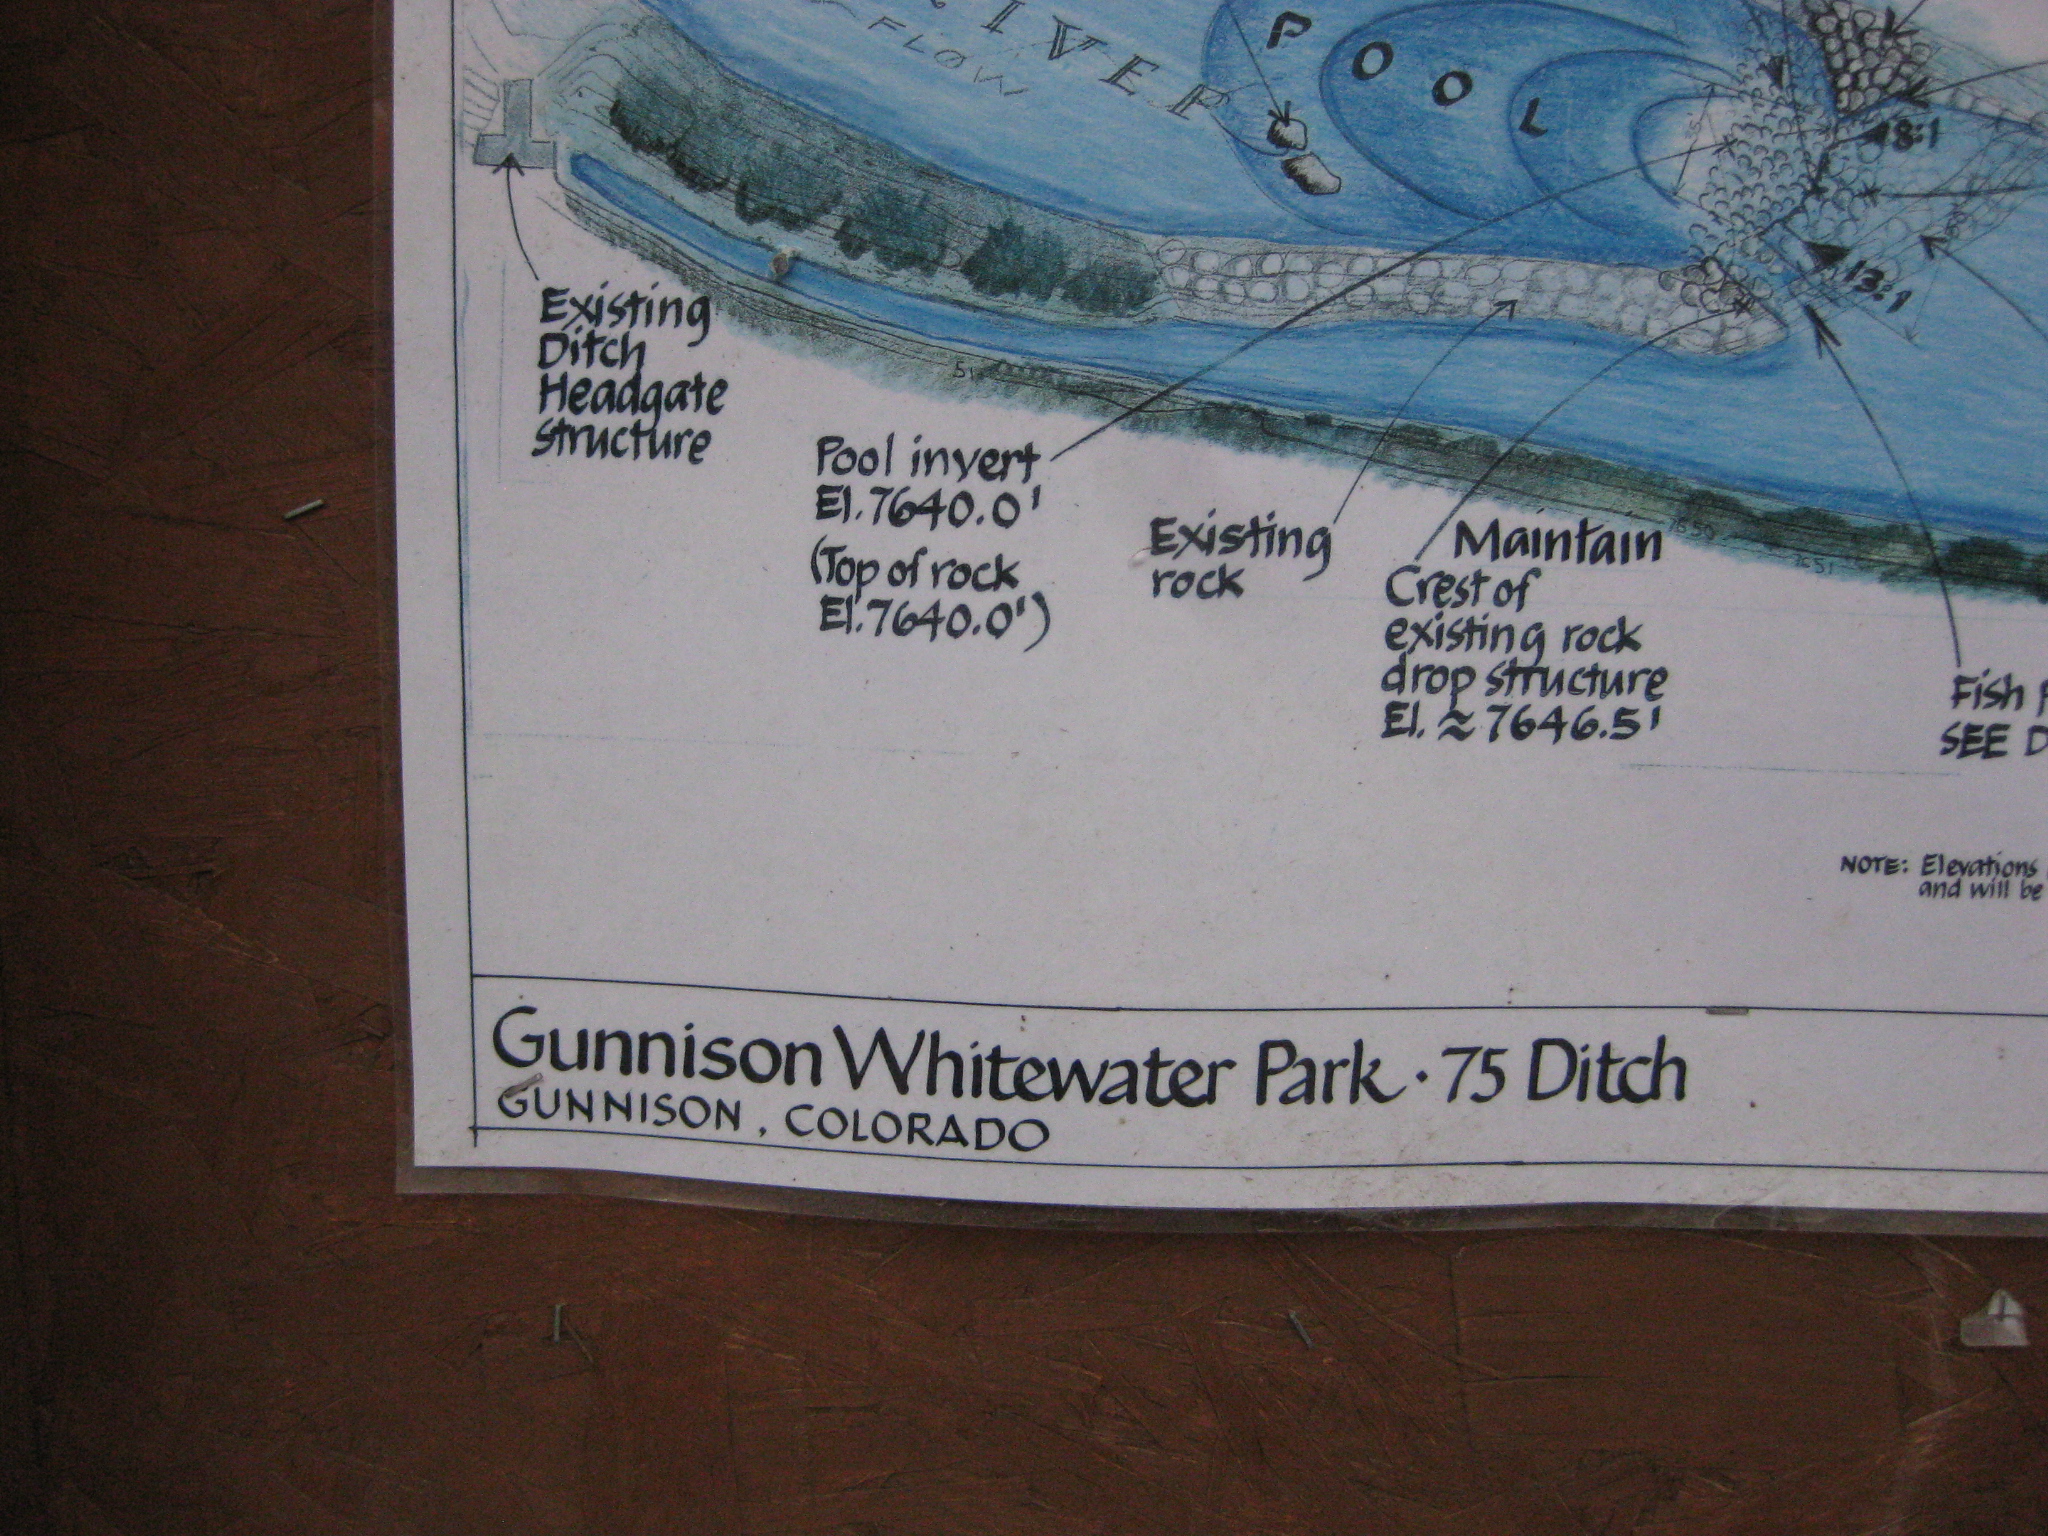 RIVER
FLOW
POOL
8:1
13:1
Existing
Ditch
Headgate
structure
Pool invert
El. 7640.0'
(Top of rock
El. 7640.0')
Existing
rock
Maintain
Crest of
existing rock
drop structure
El. ≈ 7646.5'
51
7650
7651
Fish
SEE D
NOTE: Elevations
and will be
Gunnison Whitewater Park · 75 Ditch
GUNNISON, COLORADO